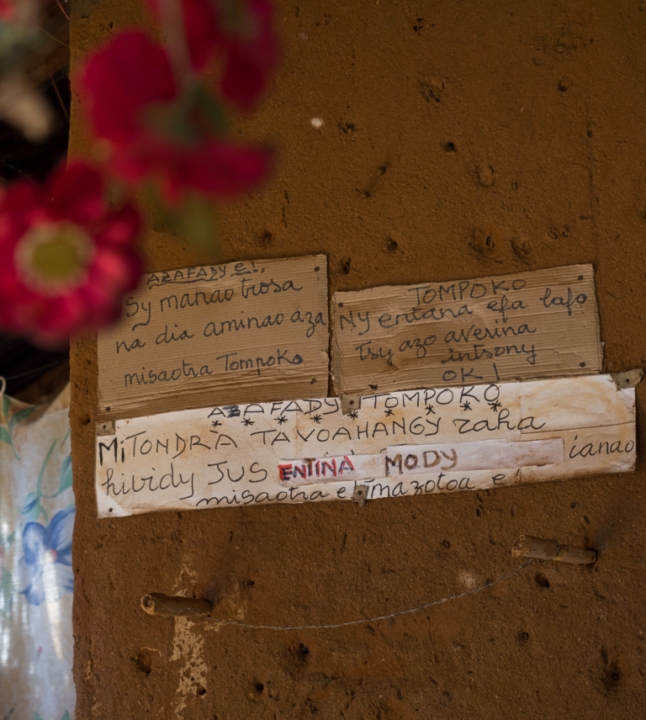 AZAFADY e!,
Sy manao trosa
na dia aminao aza
misaotra Tompoko
TOMPOKO
Ny entana efa lafo
Tsy azo averina
intsony
OK!
AZAFADY TOMPOKO
MiTONDRA TAVOAHANGY raha
hividy JUS ENTINA MODY ianao
misaotra e! mazotoa e!